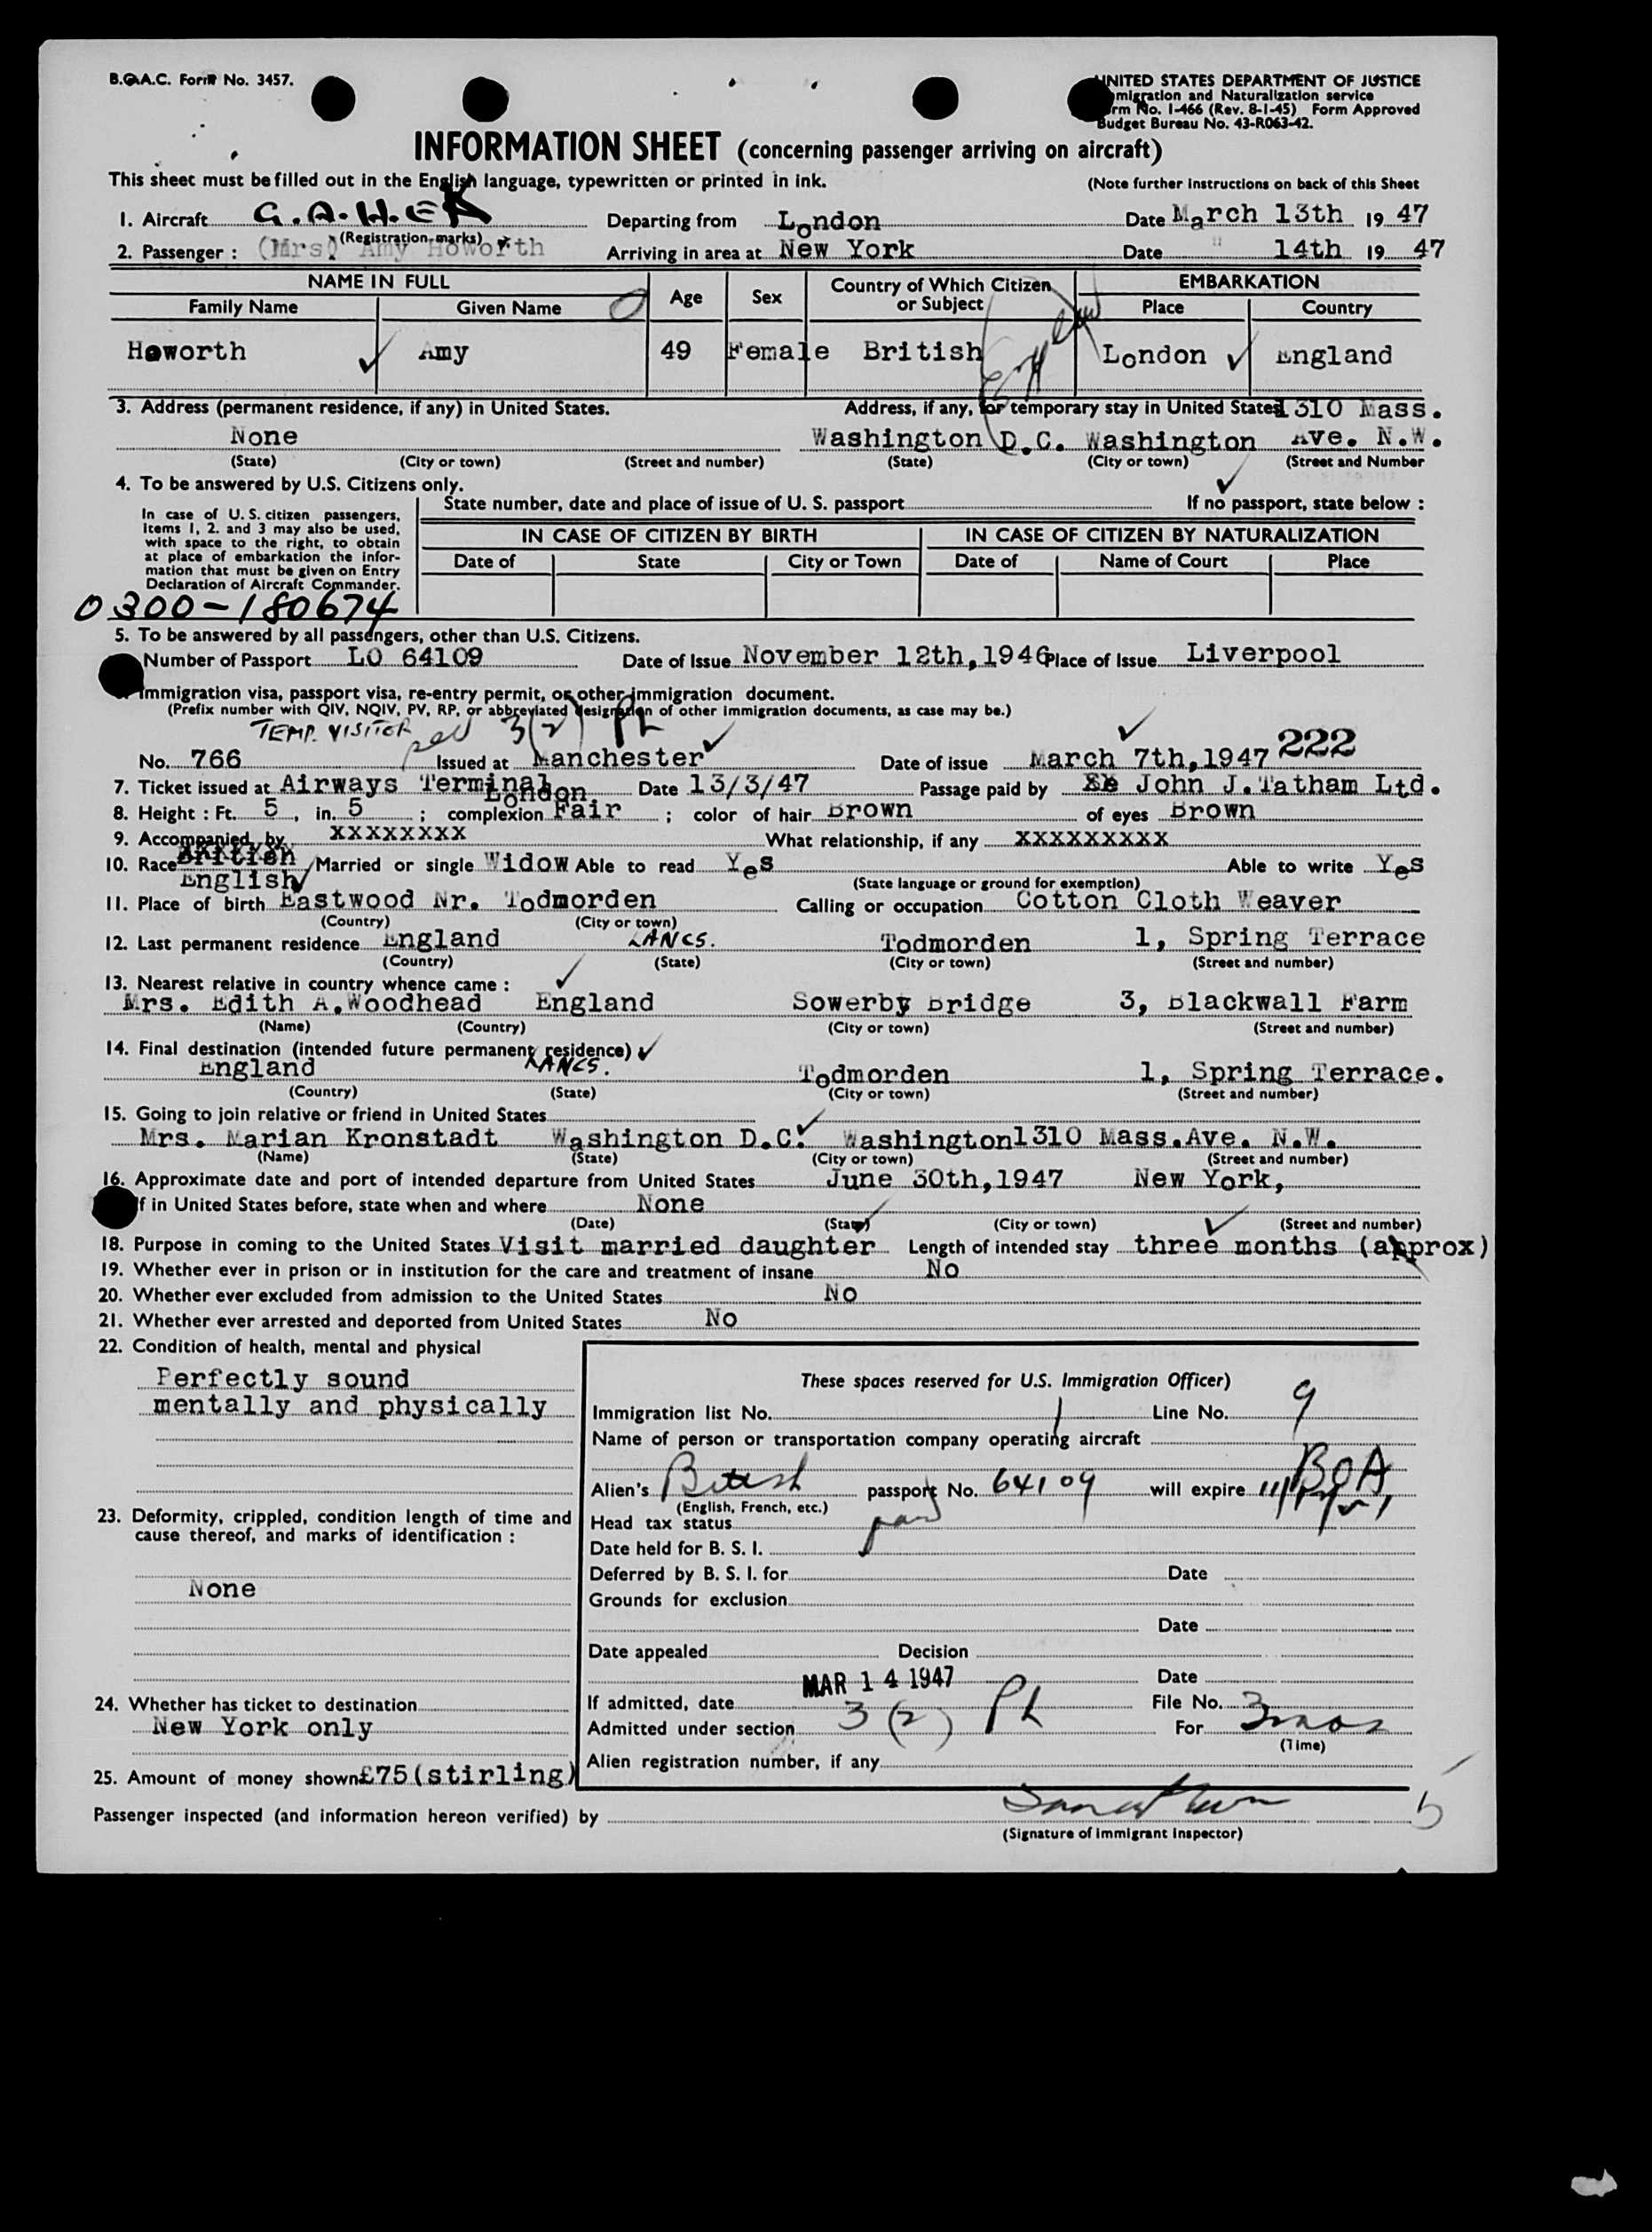 B.O.A.C. Form No. 3457.
UNITED STATES DEPARTMENT OF JUSTICE
Immigration and Naturalization service
Form No. I-466 (Rev. 8-1-45) Form Approved
Budget Bureau No. 43-R063-42.
INFORMATION SHEET (concerning passenger arriving on aircraft)
This sheet must be filled out in the English language, typewritten or printed in ink.
(Note further instructions on back of this Sheet
1. Aircraft G.A.H.E.K Departing from London Date March 13th 19 47
(Registration marks)
2. Passenger : (Mrs) Amy Howorth Arriving in area at New York Date " 14th 19 47
NAME IN FULL Age Sex Country of Which Citizen or Subject EMBARKATION
Family Name Given Name Place Country
Howorth Amy 49 Female British London England
3. Address (permanent residence, if any) in United States. Address, if any, for temporary stay in United States 1310 Mass.
None Washington D.C. Washington Ave. N.W.
(State) (City or town) (Street and number) (State) (City or town) (Street and Number
4. To be answered by U.S. Citizens only.
State number, date and place of issue of U. S. passport If no passport, state below :
In case of U. S. citizen passengers,
items 1, 2. and 3 may also be used,
with space to the right, to obtain
at place of embarkation the infor-
mation that must be given on Entry
Declaration of Aircraft Commander.
IN CASE OF CITIZEN BY BIRTH IN CASE OF CITIZEN BY NATURALIZATION
Date of State City or Town Date of Name of Court Place
0300-180674
5. To be answered by all passengers, other than U.S. Citizens.
Number of Passport LO 64109 Date of Issue November 12th,1946 Place of Issue Liverpool
Immigration visa, passport visa, re-entry permit, or other immigration document.
(Prefix number with QIV, NQIV, PV, RP, or abbreviated designation of other immigration documents, as case may be.)
TEMP. VISITOR 3(2) PL
No. 766 Issued at Manchester Date of issue March 7th,1947 222
7. Ticket issued at Airways Terminal London Date 13/3/47 Passage paid by John J.Tatham Ltd.
8. Height : Ft. 5, in. 5 ; complexion Fair ; color of hair Brown of eyes Brown
9. Accompanied by XXXXXXXX What relationship, if any XXXXXXXXX
10. Race British Married or single Widow Able to read Yes Able to write Yes
English (State language or ground for exemption)
11. Place of birth Eastwood Nr. Todmorden Calling or occupation Cotton Cloth Weaver
(Country) (City or town)
12. Last permanent residence England LANCS. Todmorden 1, Spring Terrace
(Country) (State) (City or town) (Street and number)
13. Nearest relative in country whence came :
Mrs. Edith A.Woodhead England Sowerby Bridge 3, Blackwall Farm
(Name) (Country) (City or town) (Street and number)
14. Final destination (intended future permanent residence)
England LANCS. Todmorden 1, Spring Terrace.
(Country) (State) (City or town) (Street and number)
15. Going to join relative or friend in United States
Mrs. Marian Kronstadt Washington D.C. Washington 1310 Mass.Ave. N.W.
(Name) (State) (City or town) (Street and number)
16. Approximate date and port of intended departure from United States June 30th,1947 New York,
If in United States before, state when and where None
(Date) (State) (City or town) (Street and number)
18. Purpose in coming to the United States Visit married daughter Length of intended stay three months (approx)
19. Whether ever in prison or in institution for the care and treatment of insane No
20. Whether ever excluded from admission to the United States No
21. Whether ever arrested and deported from United States No
22. Condition of health, mental and physical
Perfectly sound
mentally and physically
These spaces reserved for U.S. Immigration Officer)
Immigration list No. 1 Line No. 9
Name of person or transportation company operating aircraft
BOA
Alien's British passport No. 64109 will expire
(English, French, etc.)
23. Deformity, crippled, condition length of time and
cause thereof, and marks of identification :
None
Head tax status paid
Date held for B. S. I.
Deferred by B. S. I. for Date
Grounds for exclusion
Date
Date appealed Decision
Date
MAR 14 1947
If admitted, date File No.
Admitted under section 3 (2) PL For 3 mos
(Time)
Alien registration number, if any
24. Whether has ticket to destination
New York only
25. Amount of money shown £75(stirling)
Passenger inspected (and information hereon verified) by
(Signature of Immigrant Inspector)